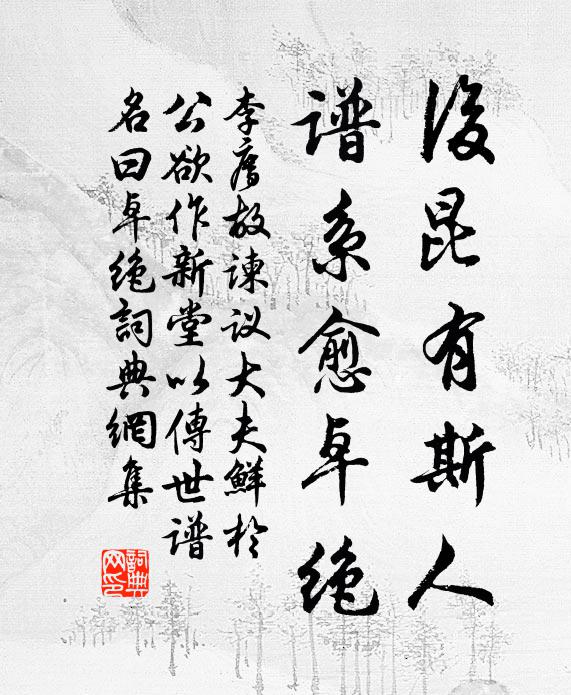 後昆有斯人
谱系愈卓绝
李廌故谏议大夫鲜於
公欲作新堂以傳世谱
名曰卓绝詞典網集
詞典网印